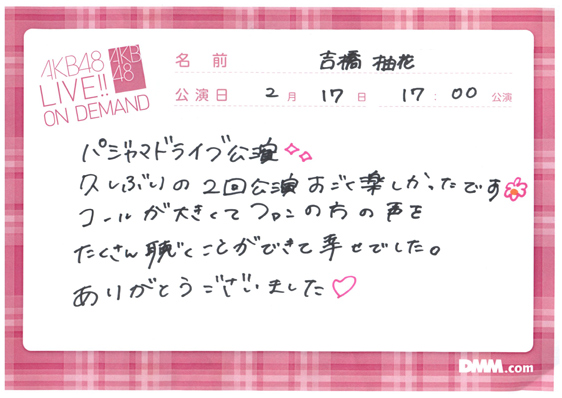 AKB48
LIVE!!
ON DEMAND
AKB
48
名前 吉橋 柚花
公演日 2月 17日 17:00 公演
パジャマドライブ公演
久しぶりの2回公演すごく楽しかったです
コールが大きくてファンの方の声を
たくさん聴くことができて幸せでした。
ありがとうございました♡
DMM.com